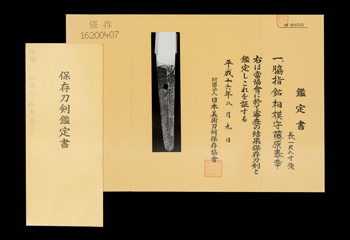 保存
16200407
鑑定書
一、脇指 銘 相模守藤原泰幸
長一尺八寸
右は当協会に於て審査の結果保存刀剣と
鑑定しこれを証する
平成十六年八月九日
財団法人日本美術刀剣保存協会
保存刀剣鑑定書